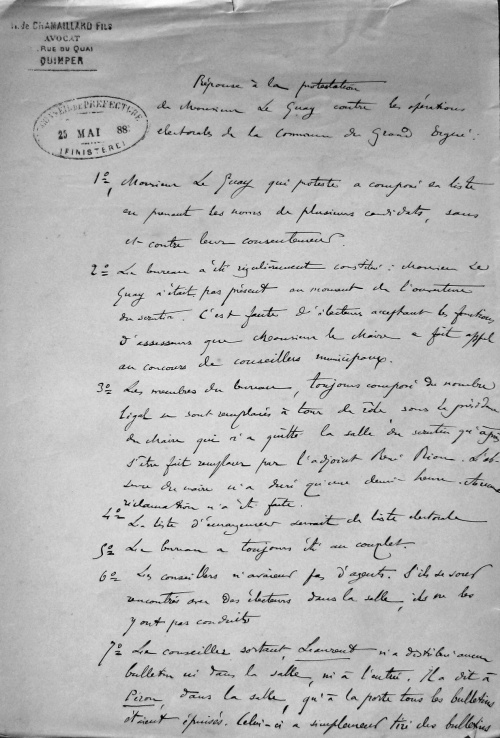 de CHAMAILLARD FILS
AVOCAT
RUE DU QUAI
QUIMPER
CONSEIL DE PREFECTURE
25 MAI 88
(FINISTERE)
Réponse à la protestation
de Monsieur Le Guay contre les opérations
électorales de la commune du Grand Ergué :
1° Monsieur Le Guay qui proteste a composé sa liste
en prenant les noms de plusieurs candidats, sans
et contre leur consentement.
2° Le bureau a été régulièrement constitué : Monsieur Le
Guay n'était pas présent au moment de l'ouverture
du scrutin. C'est faute d'électeurs acceptant les fonctions
d'assesseurs que Monsieur le Maire a fait appel
au concours de conseillers municipaux.
3° Les membres du bureau, toujours composé du nombre
légal se sont remplacés à tour de rôle sous la présiden
du Maire qui n'a quitté la salle du scrutin qu'après
s'être fait remplacer par l'adjoint René Riou. L'ab
sence du maire n'a duré qu'une demi heure. Aucune
réclamation n'a été faite.
4° La liste d'émargement servait de liste électorale
5° Le bureau a toujours été au complet.
6° Les conseillers n'avaient pas d'agents. S'ils se sont
rencontrés avec des électeurs dans la salle, ils ne les
y ont pas conduits
7° Le conseiller sortant, Leaurent n'a distribué aucun
bulletin ni dans la salle, ni à l'entrée. Il a dit à
Piron, dans la salle, qu'à la porte tous les bulletins
étaient épuisés. Celui-ci a simplement tiré des bulletins